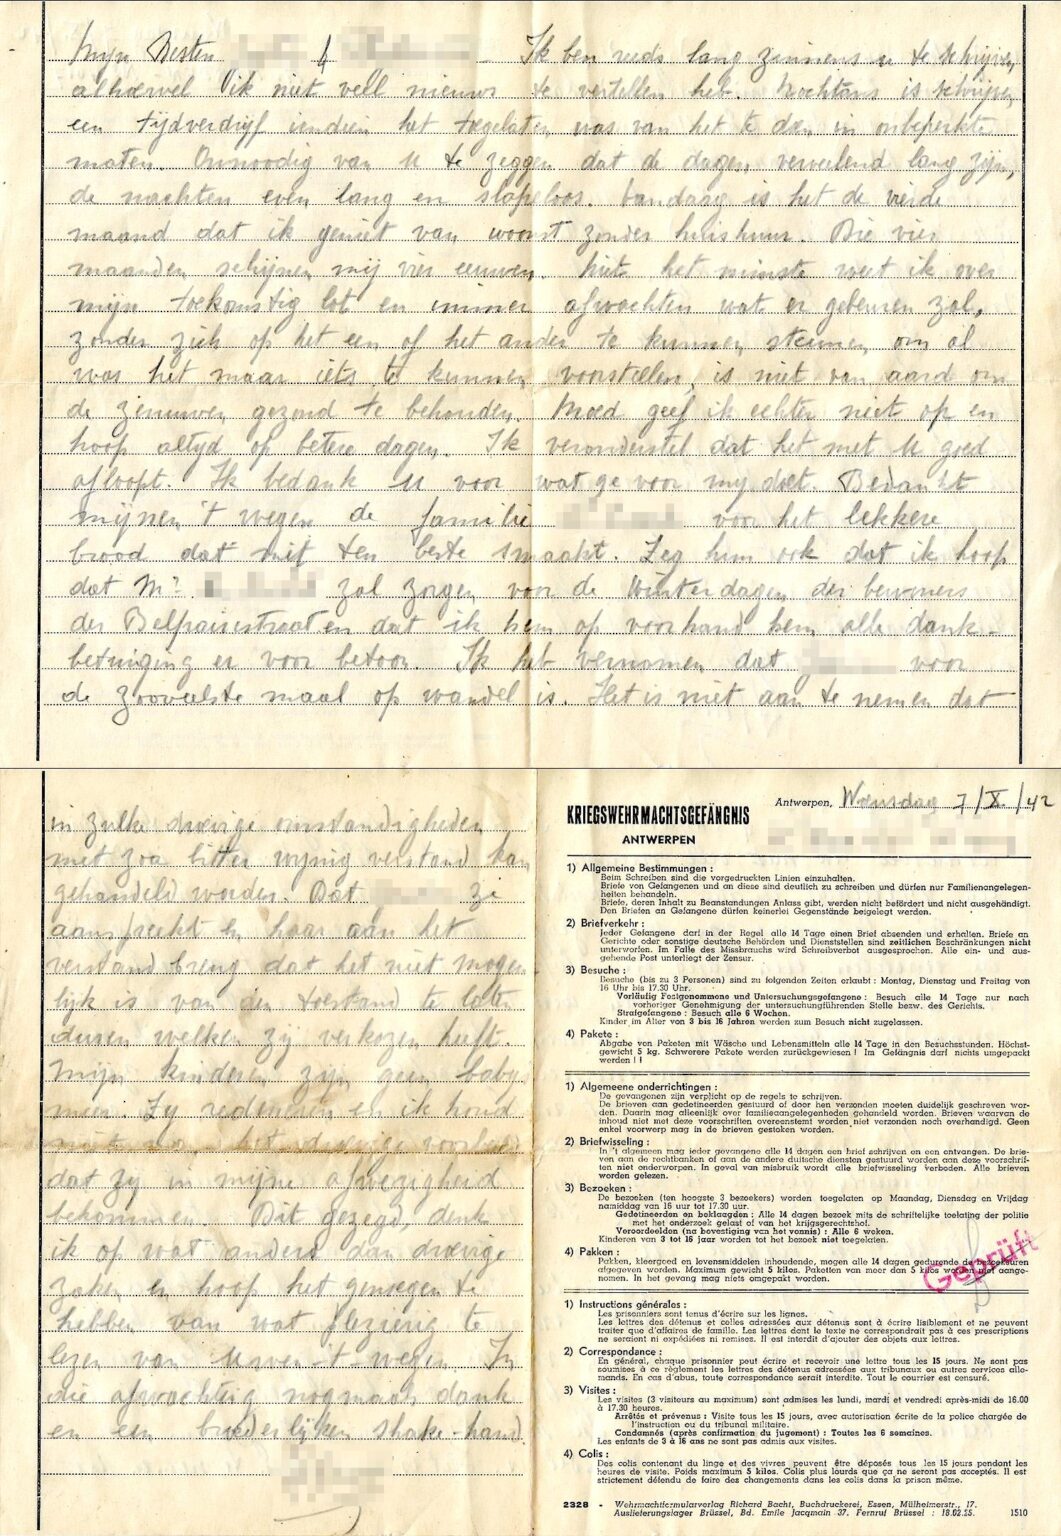 Mijn Besten & Ik ben reeds lang zinnens u te schrijven,
alhoewel ik niet veel nieuws te vertellen heb. Nochtans is schrijven
een tijdverdrijf indien het toegelaten was van het te doen in onbeperkte
maten. Onnoodig van U te zeggen dat de dagen vervelend lang zijn,
de nachten even lang en slapeloos. Vandaag is het de vierde
maand dat ik geniet van woonst zonder huishuur. Die vier
maanden schijnen mij vier eeuwen. Niet het minste weet ik over
mijn toekomstig lot en immer afwachten wat er gebeuren zal,
zonder zich op het een of het ander te kunnen steunen, om al
was het maar iets te kunnen voorstellen, is niet van aard om
de zenuwen gezond te behouden. Moed geef ik echter niet op en
hoop altyd op betere dagen. Ik veronderstel dat het met U goed
afloopt. Ik bedank U voor wat ge voor my doet. Bedankt
mijnen 't wegen de familie voor het lekkere
brood dat mij ten beste smaakt. Zeg hem ook dat ik hoop
dat Mr zal zorgen voor de Winterdagen der bewoners
der Belpairestraat en dat ik hem op voorhand hem alle dank-
betuiging er voor betoon. Ik heb vernomen dat voor
de zooveelste maal op wandel is. Het is niet aan te nemen dat
in zulke droevige omstandigheden
met zoo bitter wijnig verstand kan
gehandeld worden. Dat zi
aanspreekt en haar aan het
verstand breng dat het niet mogen
lijk is van den toestand te laten
duren welken zij verkozen heeft.
Mijn kinderen zijn geen baby
meer. Zy redeneeren en ik houd
niet van het droevige voorbeeld
dat zy in mijne afwezigheid
bekommen. Dit gezegd, denk
ik op wat anders dan droevige
zaken en hoop het genoegen te
hebben van wat plezierig te
lezen van Uwen-'t-wegen. In
die afwachting nogmaals dank
en een broederlijken shake-hand.
KRIEGSWEHRMACHTSGEFÄNGNIS
ANTWERPEN
Antwerpen, Woensdag 7/X/42
1) Allgemeine Bestimmungen :
Beim Schreiben sind die vorgedruckten Linien einzuhalten.
Briefe von Gefangenen und an diese sind deutlich zu schreiben und dürfen nur Familienangelegen-
heiten behandeln.
Briefe, deren Inhalt zu Beanstandungen Anlass gibt, werden nicht befördert und nicht ausgehändigt.
Den Briefen an Gefangene dürfen keinerlei Gegenstände beigelegt werden.
2) Briefverkehr :
Jeder Gefangene darf in der Regel alle 14 Tage einen Brief absenden und erhalten. Briefe an
Gerichte oder sonstige deutsche Behörden und Dienststellen sind zeitlichen Beschränkungen nicht
unterworfen. Im Falle des Missbrauchs wird Schreibverbot ausgesprochen. Alle ein- und aus-
gehende Post unterliegt der Zensur.
3) Besuche :
Besuche (bis zu 3 Personen) sind zu folgenden Zeiten erlaubt : Montag, Dienstag und Freitag von
16 Uhr bis 17.30 Uhr.
Vorläufig Festgenommene und Untersuchungsgefangene : Besuch alle 14 Tage nur nach
vorheriger Genehmigung der untersuchungführenden Stelle bezw. des Gerichts.
Strafgefangene : Besuch alle 6 Wochen.
Kinder im Alter von 3 bis 16 Jahren werden zum Besuch nicht zugelassen.
4) Pakete :
Abgabe von Paketen mit Wäsche und Lebensmitteln alle 14 Tage in den Besuchsstunden. Höchst-
gewicht 5 kg. Schwerere Pakete werden zurückgewiesen ! Im Gefängnis darf nichts umgepackt
werden ! !
1) Algemeene onderrichtingen :
De gevangenen zijn verplicht op de regels te schrijven.
De brieven aan gedetineerden gestuurd of door hen verzonden moeten duidelijk geschreven wor-
den. Daarin mag alleenlijk over familieaangelegenheden gehandeld worden. Brieven waarvan de
inhoud niet met deze voorschriften overeenstemt worden niet verzonden noch overhandigd. Geen
enkel voorwerp mag in de brieven gestoken worden.
2) Briefwisseling :
In 't algemeen mag ieder gevangene alle 14 dagen een brief schrijven en een ontvangen. De brie-
ven aan de rechtbanken of aan de andere duitsche diensten gestuurd worden aan deze voorschrif-
ten niet onderworpen. In geval van misbruik wordt alle briefwisseling verboden. Alle brieven
worden gelezen.
3) Bezoeken :
De bezoeken (ten hoogste 3 bezoekers) worden toegelaten op Maandag, Diensdag en Vrijdag
namiddag van 16 uur tot 17.30 uur.
Gedetineerden en beklaagden : Alle 14 dagen bezoek mits de schriftelijke toelating der politie
met het onderzoek gelast of van het krijgsgerechtshof.
Veroordeelden (na bevestiging van het vonnis) : Alle 6 weken.
Kinderen van 3 tot 16 jaar worden tot het bezoek niet toegelaten.
4) Pakken :
Pakken, kleergoed en levensmiddelen inhoudende, mogen alle 14 dagen gedurende de bezoekuren
afgegeven worden. Maximum gewicht 5 kilos. Paketten van meer dan 5 kilos worden niet aange-
nomen. In het gevang mag niets omgepakt worden.
Geprüft
1) Instructions générales :
Les prisonniers sont tenus d'écrire sur les lignes.
Les lettres des détenus et celles adressées aux détenus sont à écrire lisiblement et ne peuvent
traiter que d'affaires de famille. Les lettres dont le texte ne correspondrait pas à ces prescriptions
ne seraient ni expédiées ni remises. Il est interdit d'ajouter des objets aux lettres.
2) Correspondance :
En général, chaque prisonnier peut écrire et recevoir une lettre tous les 15 jours. Ne sont pas
soumises à ce règlement les lettres des détenus adressées aux tribunaux ou autres services alle-
mands. En cas d'abus, toute correspondance serait interdite. Tout le courrier est censuré.
3) Visites :
Les visites (3 visiteurs au maximum) sont admises les lundi, mardi et vendredi après-midi de 16.00
à 17.30 heures.
Arrêtés et prévenus : Visite tous les 15 jours, avec autorisation écrite de la police chargée de
l'instruction ou du tribunal militaire.
Condamnés (après confirmation du jugement) : Toutes les 6 semaines.
Les enfants de 3 à 16 ans ne sont pas admis aux visites.
4) Colis :
Des colis contenant du linge et des vivres peuvent être déposés tous les 15 jours pendant les
heures de visite. Poids maximum 5 kilos. Colis plus lourds que ça ne seront pas acceptés. Il est
strictement défendu de faire des changements dans les colis dans la prison même.
2328 - Wehrmachtformularverlag Richard Bacht, Buchdruckerei, Essen, Mülheimerstr., 17.
Auslieferungslager Brüssel, Bd. Emile Jacqmain 37. Fernruf Brüssel : 18.02.55. 1510